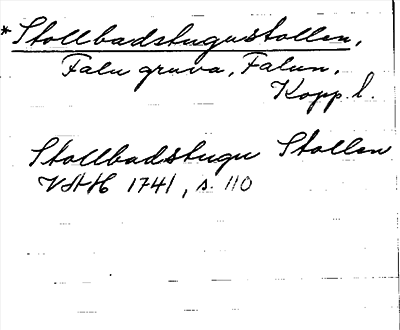 *Stollbadstugustollen,
Falu gruva, Falun,
Kopp. l.
Stollbadstugu Stollen
VAH 1741, s. 110